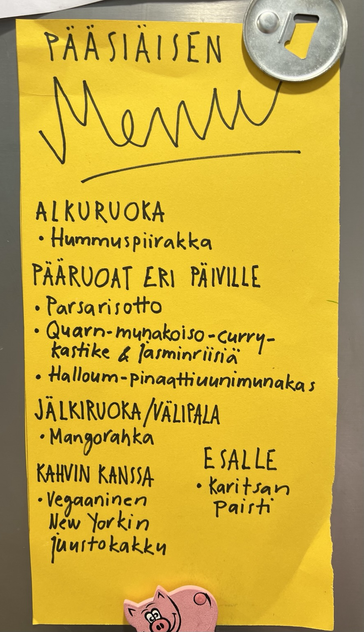 PÄÄSIÄISEN
Menu
ALKURUOKA
• Hummuspiirakka
PÄÄRUOAT ERI PÄIVILLE
• Parsarisotto
• Quarn-munakoiso-curry-
kastike & jasminriisiä
• Halloum-pinaattiuunimunakas
JÄLKIRUOKA/VÄLIPALA
• Mangorahka
KAHVIN KANSSA
• Vegaaninen
New Yorkin
juustokakku
ESALLE
• Karitsan
paisti